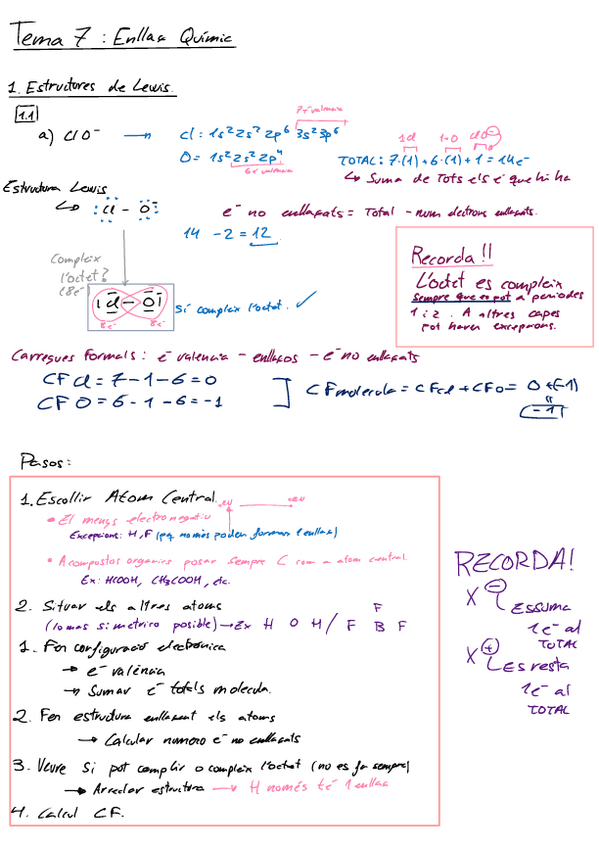 Tema 7 : Enllaç Químic
1. Estructures de Lewis.
1.1
7 e⁻ valencia
a) ClO⁻ → Cl : 1s² 2s² 2p⁶ 3s² 3p⁶
O = 1s² 2s² 2p⁴
6 e⁻ valencia
1Cl 1·O ClO⁻
TOTAL: 7·(1) + 6·(1) + 1 = 14e⁻
↳ Suma de Tots els e⁻ que hi ha
Estructura Lewis
↳ :Cl – O⁻:
e⁻ no enllaçats = Total – num electrons enllaçats.
14 – 2 = 12
Compleix
l'octet?
(8e⁻)
|Cl – O|
8e⁻ 8e⁻
Sí compleix l'octet. ✓
Recorda!!
L'octet es compleix
sempre que es pot a periodes
1 i 2. A altres capes
pot haver excepcions.
Carregues formals : e⁻ valencia – enllaços – e⁻ no enllaçats
CF Cl = 7 – 1 – 6 = 0
CF O = 6 – 1 – 6 = –1
CF molecula = CF Cl + CF O = 0 + (–1)
"
(–1)
Pasos:
1. Escollir Àtom Central.
-EN +EN
• El menys electronegatiu
Excepcions: H, F (pq només poden formar 1 enllaç)
• A compostos organics posar sempre C com a atom central.
Ex: HCOOH, CH₃COOH, etc.
2. Situar els altres atoms
(lo mas simétrico posible) → Ex H O H / F B F
F
1. Fer configuració electrònica
→ e⁻ valència
→ Sumar e⁻ totals molecula.
2. Fer estructura enllaçant els atoms
→ Calcular numero e⁻ no enllaçats
3. Veure si pot complir o compleix l'octet (no es fa sempre)
→ Arreclar estructura → H només té 1 enllaç
4. Calcul CF.
RECORDA!
X⁻
ES SUMA
1e⁻ al
TOTAL
X⁺
ES resta
1e⁻ al
TOTAL